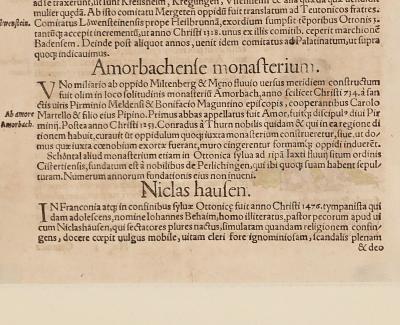 ad se traxerunt, ut sunt
mulier quędã. Ab isto comitatu Mergeten oppidũ fuit translatum ad Teutonicos fratres.
Comitatus Lówensteinensis prope Heilbrunnã, exordium sumpsit tẽporibus Ottonis 1.
tantũq; accepit incrementũ, ut anno Christi 1318. unus ex illis comitib. ceperit marchionẽ
Badensem. Deinde post aliquot annos, uenit idem comitatus ad Palatinatum, ut supra
quoq; indicauimus.
Amorbachense monasterium.
VNo miliario ab oppido Miltenberg & Meno fluuio uersus meridiem constructum
fuit olim in loco solitudinis monasteriũ Amorbach, anno scilicet Christi 714. à san
ctis uiris Pirminio Meldensi & Bonifacio Maguntino episcopis, cooperantibus Carolo
Ab amore
Martello & filio eius Pipino. Primus abbas appellatus fuit Amor, fuitq; discipul9 diui Pir
Amorbach.
minij. Postea anno Christi 1253. Conradus à Thurn nobilis quidam & qui in ea regione di
tionem habuit, curauit ut oppidulum quoq; iuxta monasterium construeretur, siue, ut do-
mus quæ iuxta cœnobium exortæ fuerant, muro cingerentur formamq; oppidi induerẽt.
Schôntal aliud monasterium etiam in Ottonica sylua ad ripã Iaxti fluuij situm ordinis
Cistertiensis, fundatum est à nobilibus de Perlichingen, qui ibi quoq; suam habent sepul-
turam. Numerum annorum fundationis eius non inueni.
Niclas hausen.
IN Franconia atq; in confinibus syluæ Ottonicę fuit anno Christi 1476. tympanista qui
dam adolescens, nomine Iohannes Behaim, homo illiteratus, pastor pecorum apud ui
cum Niclashausen, qui sectatores plures nactus, simulatam quandam religionem confin-
gens, docere cœpit uulgus mobile, uitam cleri fore ignominiosam, scandalis plenam
& deo